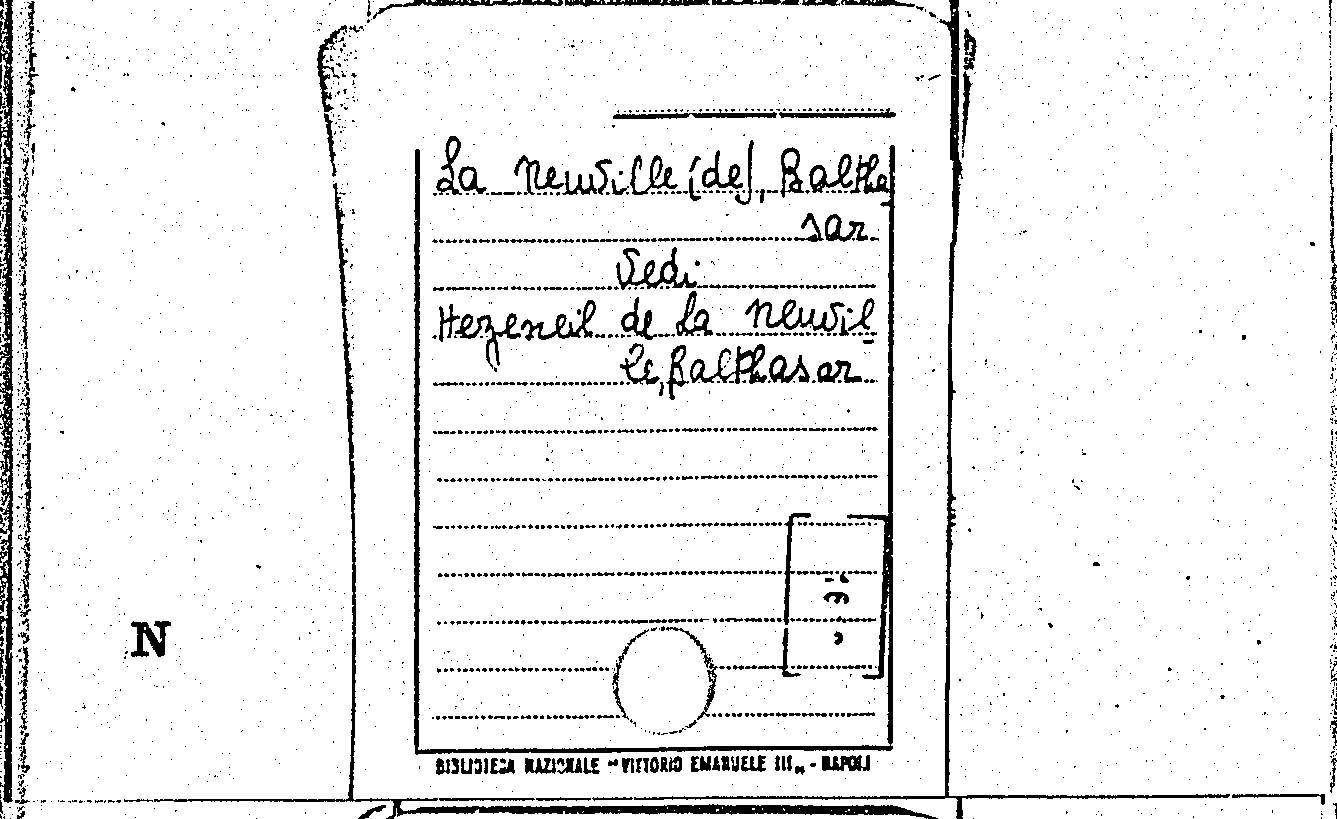 La Neuville (de), Baltha
sar
Vedi
Hezeneil de La Neuvil-
le, Balthasar
N
BIBLIOTECA NAZIONALE "VITTORIO EMANUELE III" - NAPOLI